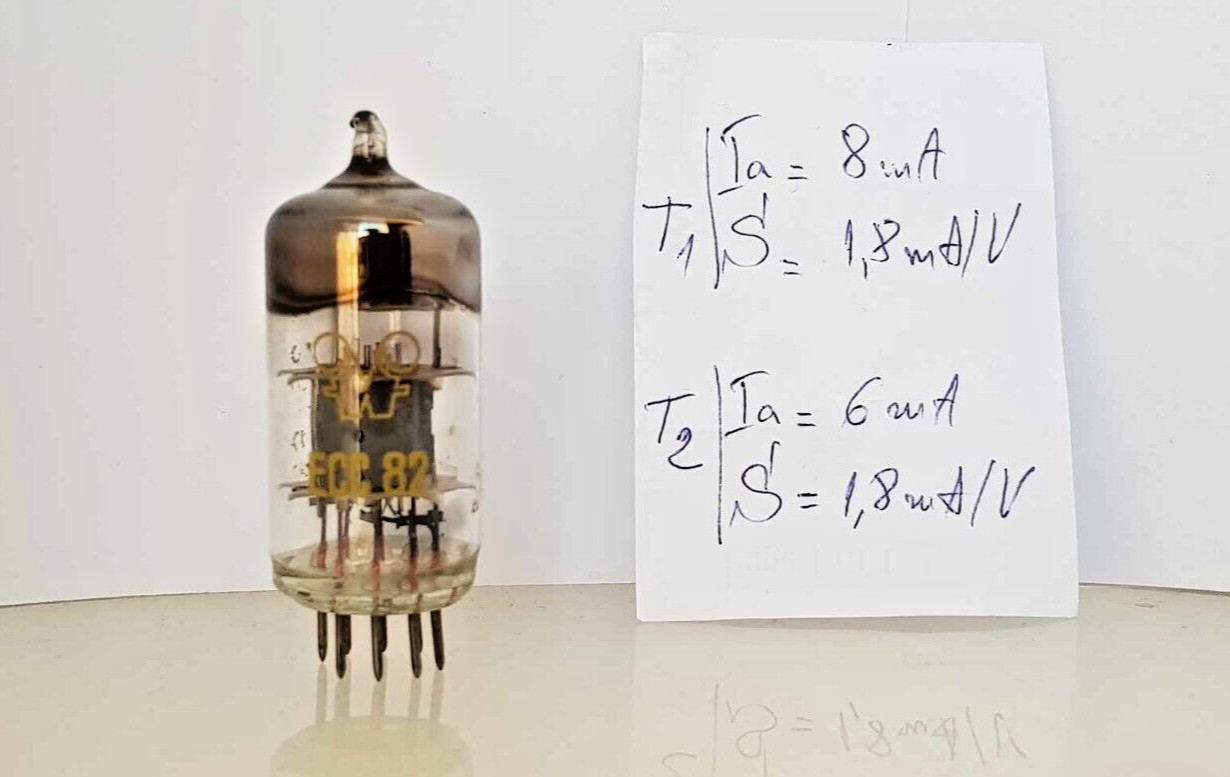 ECC 82
T1 | Ia = 8 mA
S = 1,8 mA/V
T2 | Ia = 6 mA
S = 1,8 mA/V